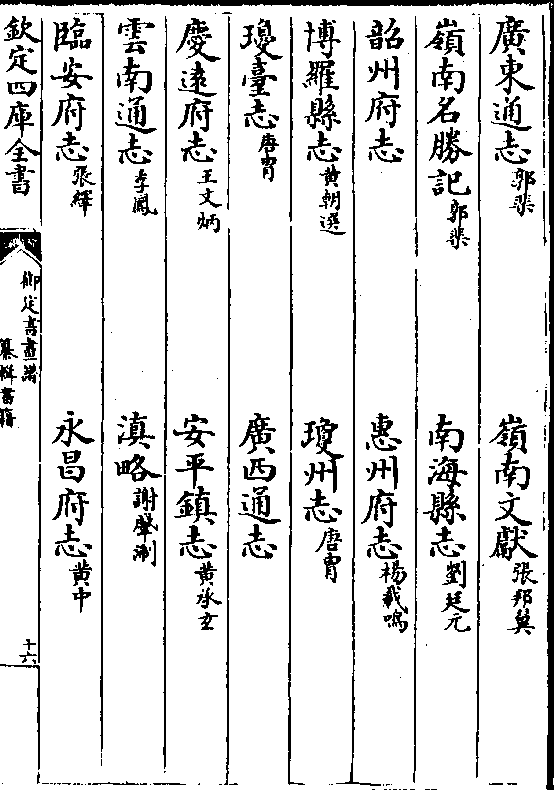 廣東通志郭棐　嶺南文獻張邦翼
嶺南名勝記郭棐　南海縣志劉廷元
韶州府志　惠州府志楊載鳴
博羅縣志黄朝選　瓊州志唐胄
瓊臺志唐胄　廣西通志
慶逺府志王文炳　安平鎮志黄承玄
雲南通志李鳳　滇略謝肇淛
臨安府志張繹　永昌府志黄中
欽定四庫全書　御定書畫譜　纂輯書籍　十六